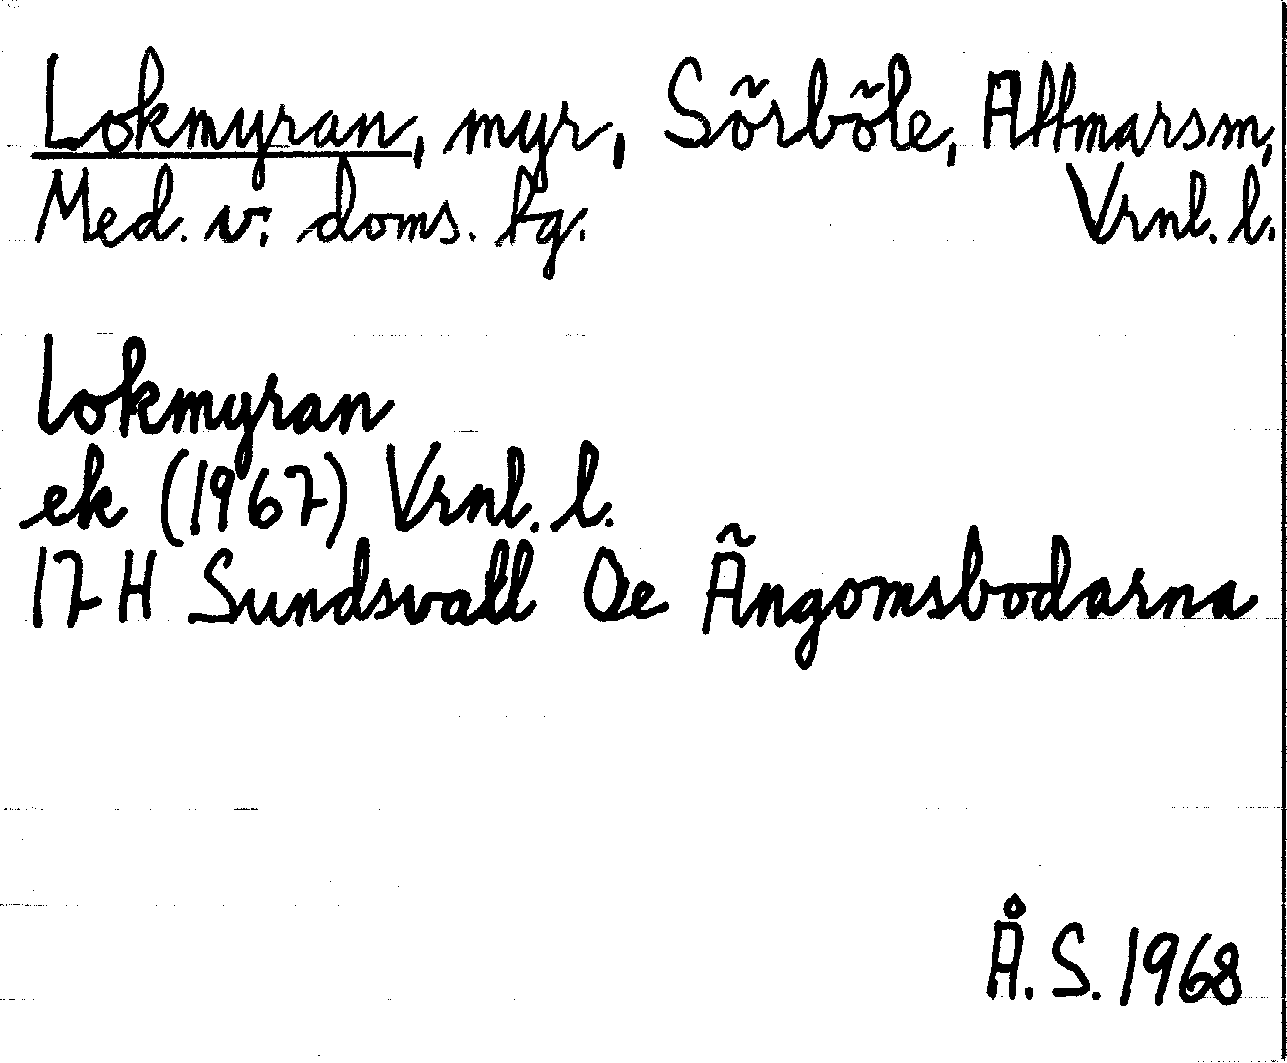 Lokmyran, myr, Sörböle, Attmarsm,
Med. v. doms. lg. Vrnl. l.
Lokmyran
ek (1967) Vrnl. l.
17 H Sundsvall Oe Ängomsbodarna
Å. S. 1968